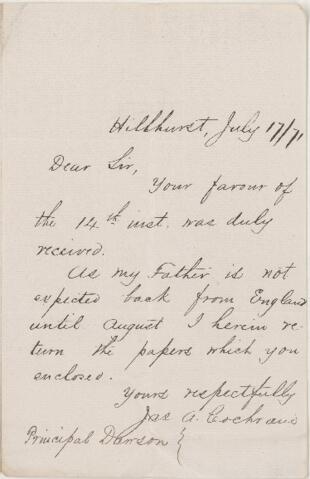 Hillhurst, July 17/71
Dear Sir,
Your favour of
the 14th inst. was duly
received.
As my Father is not
expected back from England
until August I herein re-
turn the papers which you
enclosed.
Yours respectfully
Jas A. Cochrane
Principal Dawson }